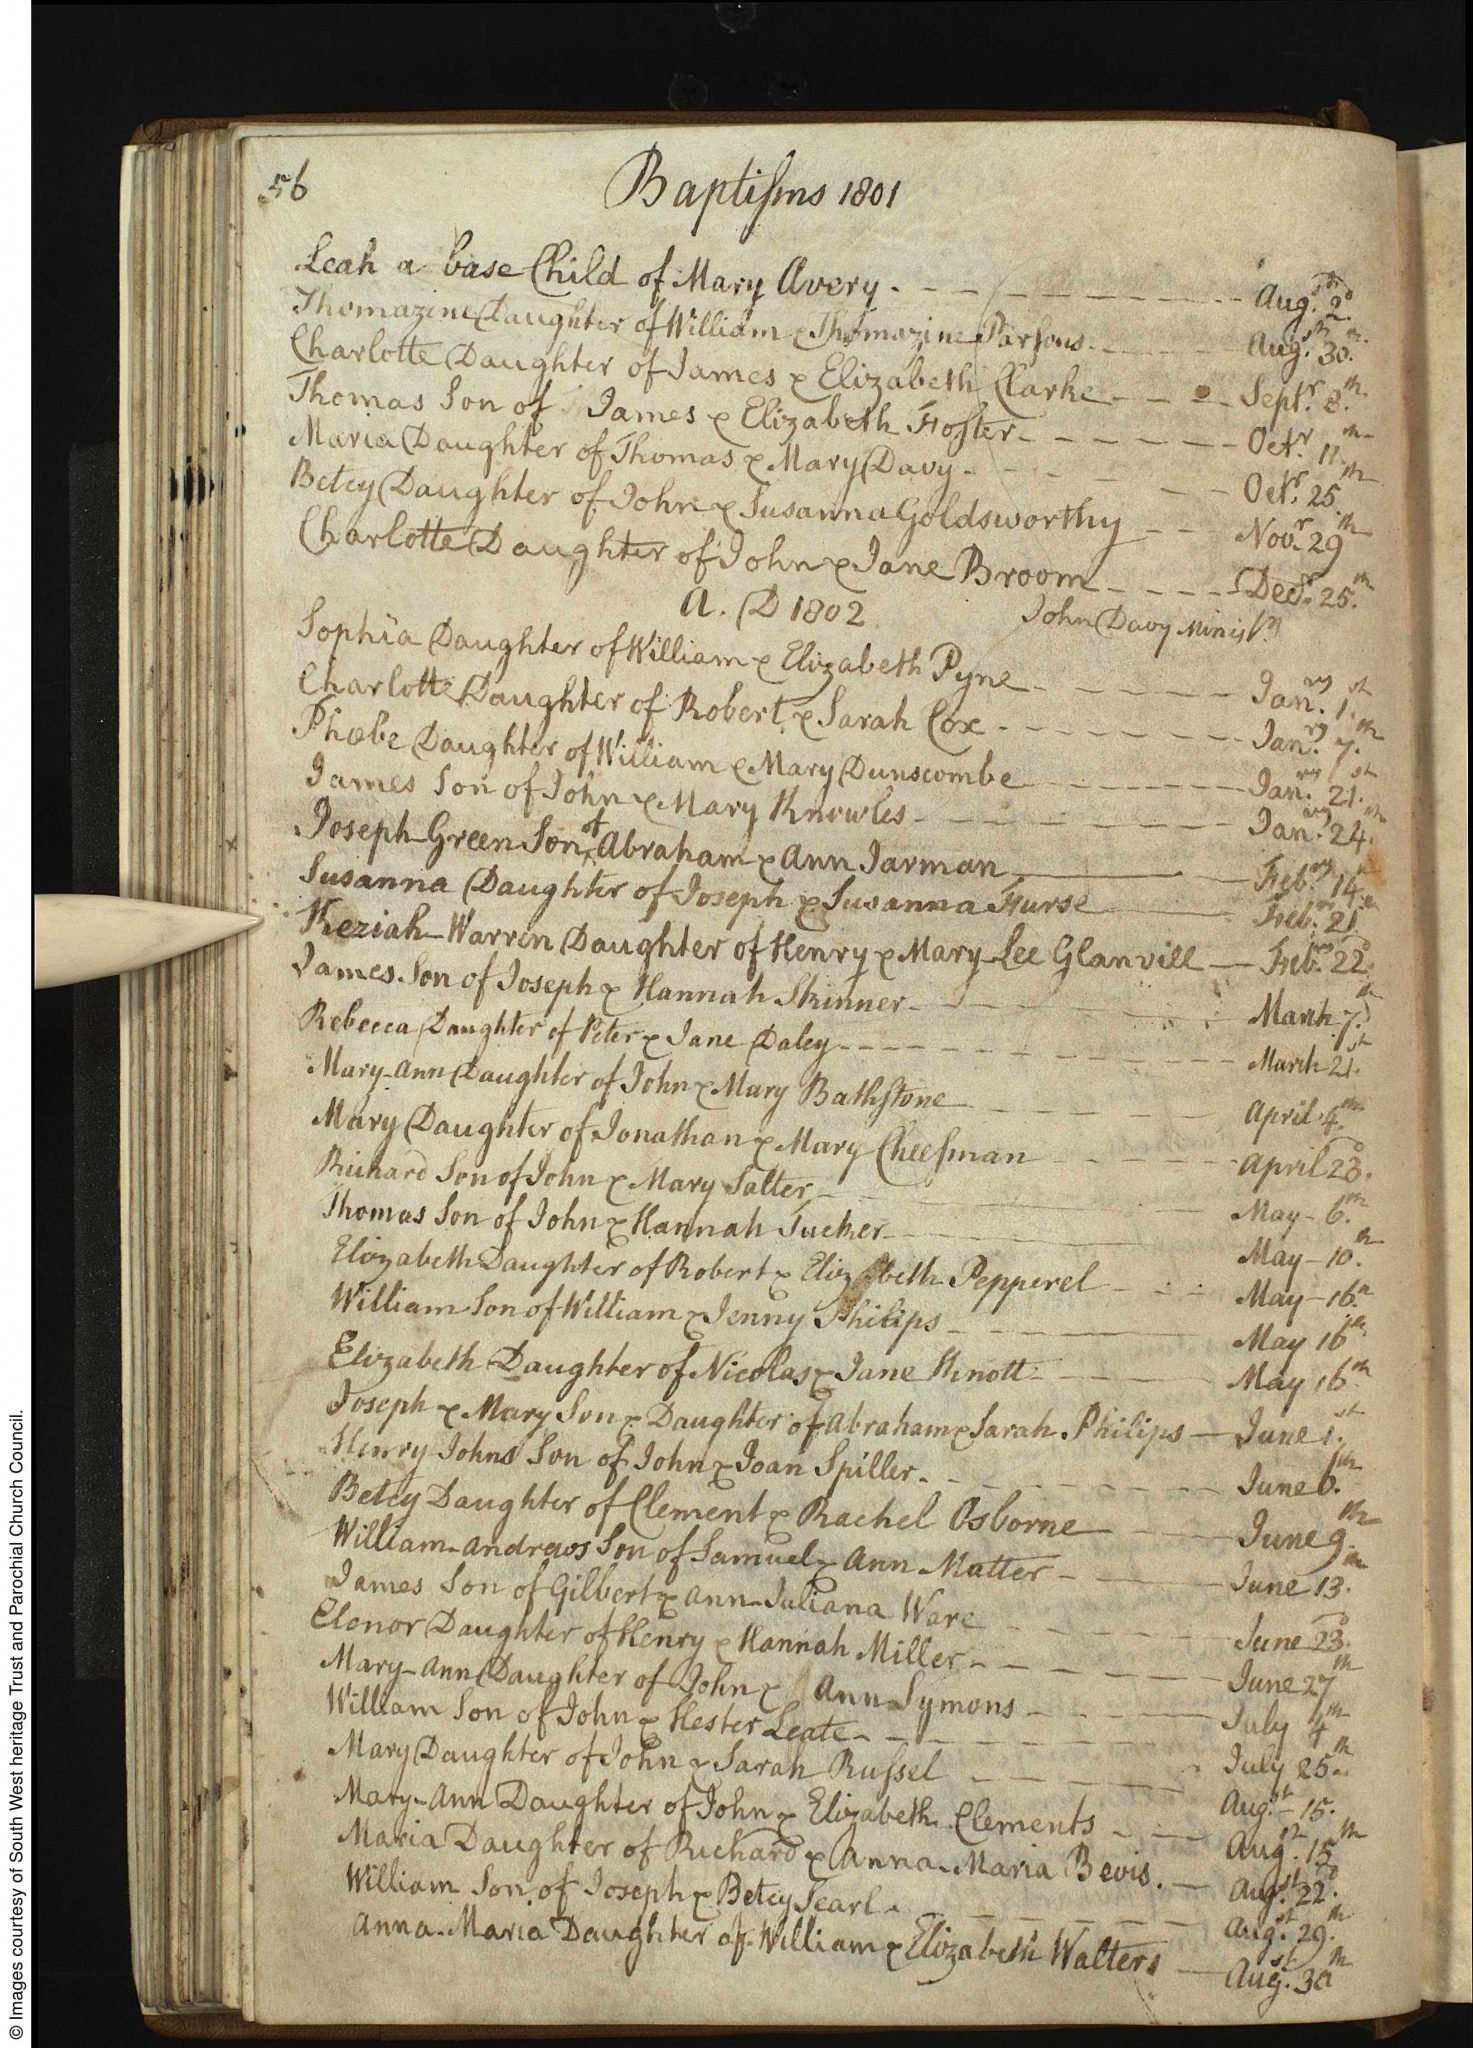 56
Baptiſms 1801
Leah a base Child of Mary Avery Augst. 2d.
Thomazine Daughter of William & Thomazine Parſons Augst. 30th.
Charlotte Daughter of James & Elizabeth Clarke Septr. 8th.
Thomas Son of James & Elizabeth Foſter Octr. 11th
Maria Daughter of Thomas & Mary Davy Octr. 25th
Betcy Daughter of John & Susanna Goldsworthy Novr. 29th
Charlotte Daughter of John & Jane Broom Decr. 25th.
A. D 1802 John Davy Ministr.
Sophia Daughter of William & Elizabeth Pyne Janry. 1st.
Charlotte Daughter of Robert & Sarah Cox Janry. 7th.
Phœbe Daughter of William & Mary Dunscombe Janry. 21st.
James Son of John & Mary Knowles Janry. 24th.
Joseph-Green Son of Abraham & Ann Jarman Febry. 14th
Susanna Daughter of Joseph & Susanna Furse Febry. 21st
Keziah-Warren Daughter of Henry & Mary-Lee Glanvill Febry. 22d.
James Son of Joseph & Hannah Skinner March 7th.
Rebecca Daughter of Peter & Jane Daley March 21st.
Mary-Ann Daughter of John & Mary Bathſtone April 4th.
Mary Daughter of Jonathan & Mary Cheeſman April 23d.
Richard Son of John & Mary Salter May 6th.
Thomas Son of John & Hannah Tucker May 10th.
Elizabeth Daughter of Robert & Elizabeth Pepperel May 16th.
William Son of William & Jenny Philips May 16th.
Elizabeth Daughter of Nicolas & Jane Knott May 16th
Joseph & Mary Son & Daughter of Abraham & Sarah Philips June 1st.
Henry Johns Son of John & Joan Spiller June 6th.
Betcy Daughter of Clement & Rachel Osborne June 9th.
William-Andrews Son of Samuel & Ann Matter June 13th.
James Son of Gilbert & Ann-Juliana Ware June 23d.
Elonor Daughter of Henry & Hannah Miller June 27th
Mary-Ann Daughter of John & Ann Symons July 4th
William Son of John & Hester Leate July 25th.
Mary Daughter of John & Sarah Ruſsel Augst. 15.
Mary-Ann Daughter of John & Elizabeth Clements Augst. 15th
Maria Daughter of Richard & Anna-Maria Bevis. Augst. 22d.
William Son of Joseph & Betcy Searl. Augst. 29th.
Anna-Maria Daughter of William & Elizabeth Walters Augst. 30th
© Images courtesy of South West heritage Trust and Parochial Church Council.